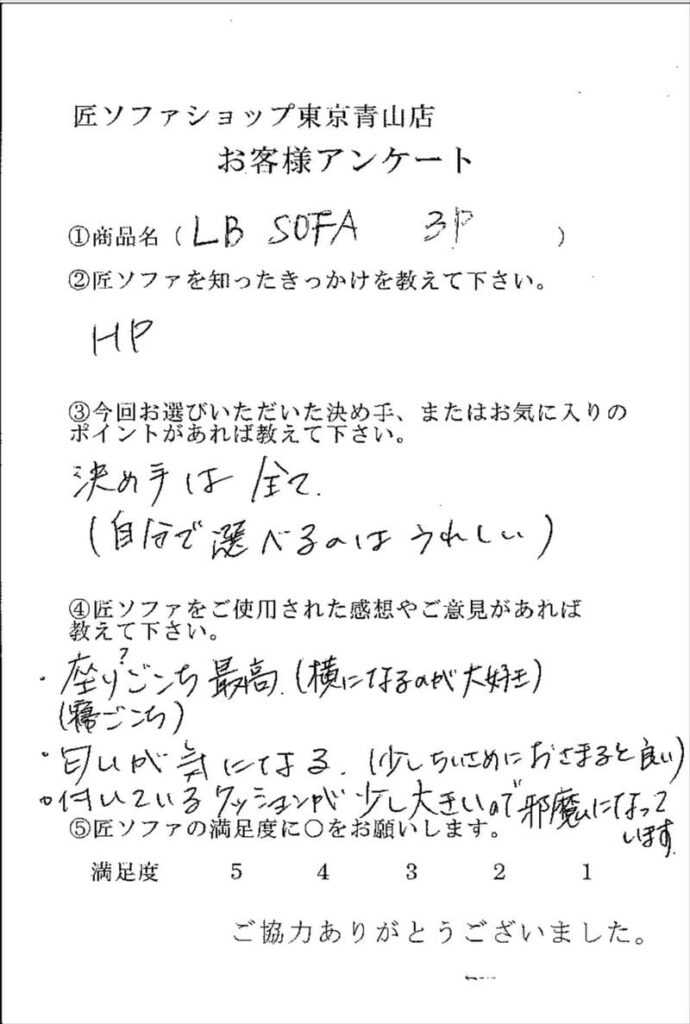 匠ソファショップ東京青山店
お客様アンケート
①商品名（ LB SOFA 3P ）
②匠ソファを知ったきっかけを教えて下さい。
HP
③今回お選びいただいた決め手、またはお気に入りの
ポイントがあれば教えて下さい。
決め手は全て.
(自分で選べるのはうれしい)
④匠ソファをご使用された感想やご意見があれば
教えて下さい。
・座り?ごこち最高.(横になるのが大好き)
(寝ごこち)
・匂いが気になる.(少しちいさめにおさまると良い)
・付いているクッションが少し大きいので邪魔になって
います.
⑤匠ソファの満足度に○をお願いします。
満足度 5 4 3 2 1
ご協力ありがとうございました。